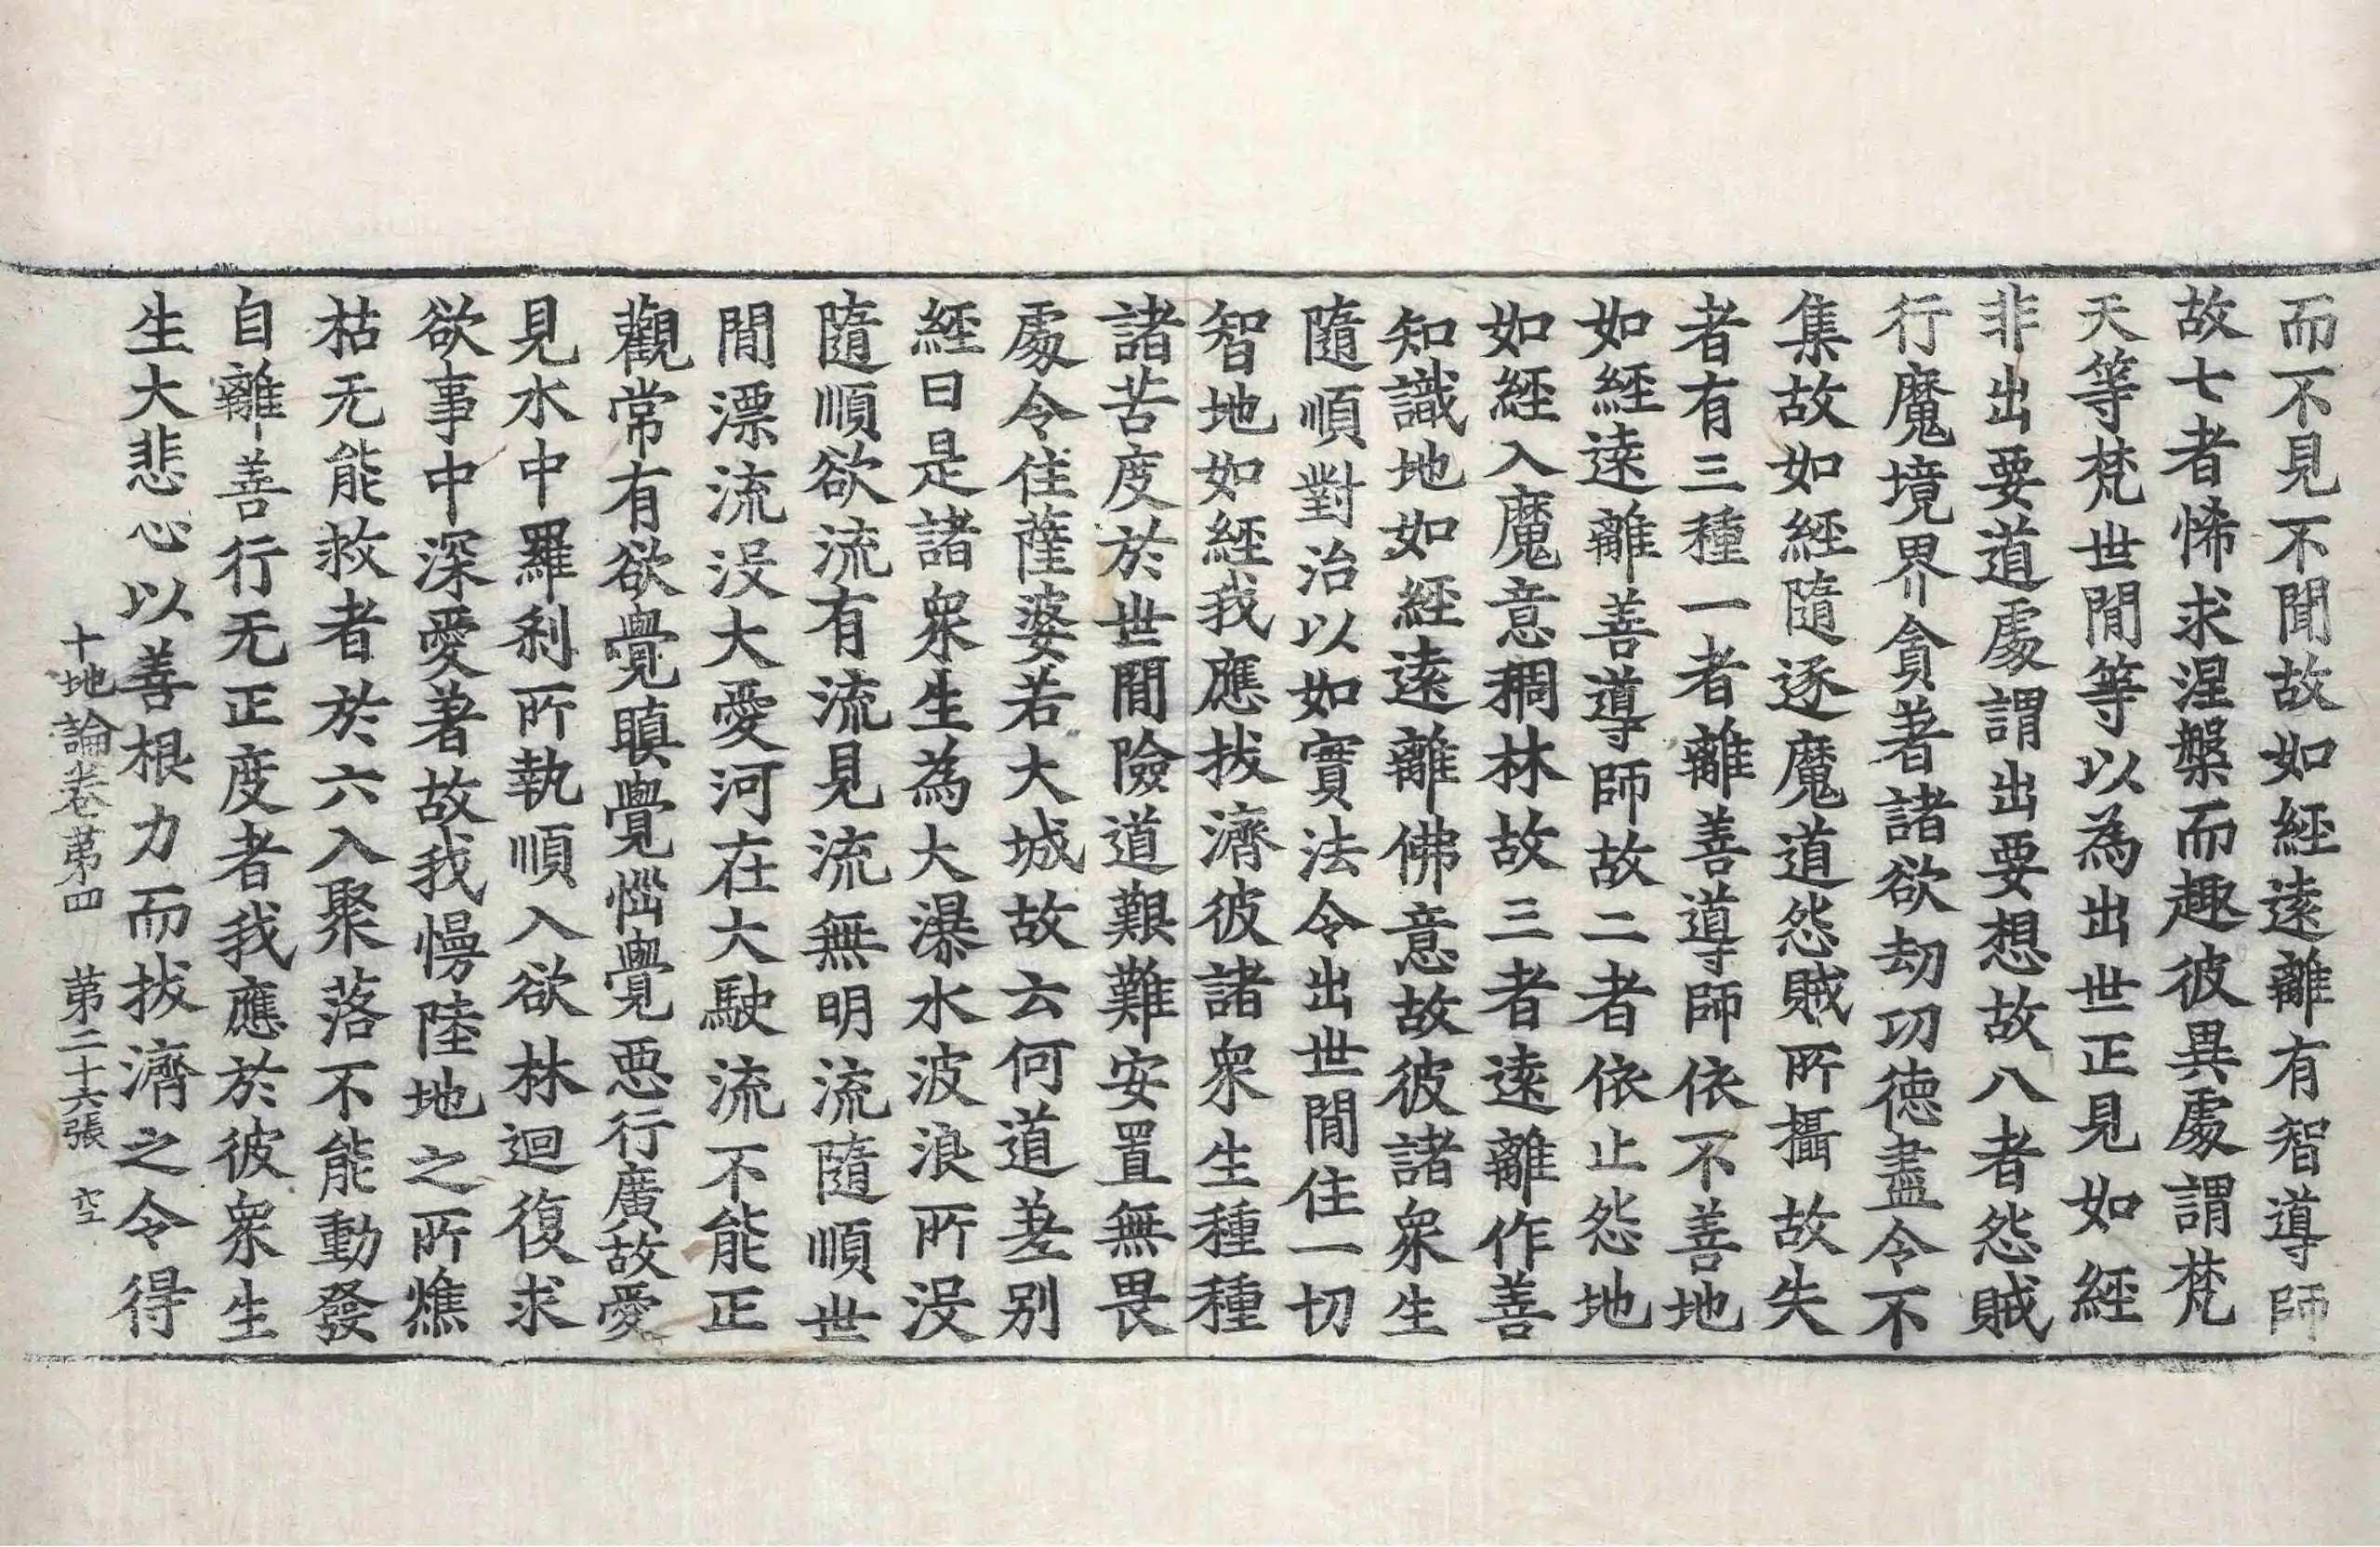 而不見不聞故如經遠離有智導師
故七者悕求涅槃而趣彼異處謂梵
天等梵世間等以為出世正見如經
非出要道處謂出要想故八者怨賊
行魔境界貪著諸欲劫功德盡令不
集故如經隨逐魔道怨賊所攝故失
者有三種一者離善導師依不善地
如經遠離善導師故二者依止怨地
如經入魔意稠林故三者遠離作善
知識地如經遠離佛意故彼諸衆生
隨順對治以如實法令出世間住一切
智地如經我應拔濟彼諸衆生種種
諸苦度於世間險道艱難安置無畏
處令住薩婆若大城故云何道差別
經曰是諸衆生為大瀑水波浪所没
隨順欲流有流見流無明流隨順世
間漂流没大愛河在大駛流不能正
觀常有欲覺瞋覺惱覺惡行廣故愛
見水中羅刹所執順入欲林迴復求
欲事中深愛著故我慢陸地之所燋
枯无能救者於六入聚落不能動發
自離善行无正度者我應於彼衆生
生大悲心以善根力而拔濟之令得
十地論卷苐四　苐二十六張　空